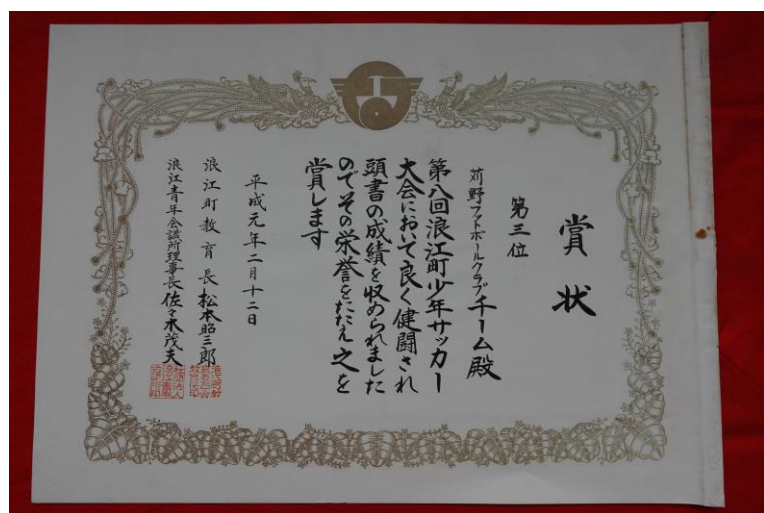 賞状
第三位
苅野フットボールクラブチーム殿
第八回浪江町少年サッカー
大会において良く健闘され
頭書の成績を収められました
のでその栄誉をたたえ之を
賞します
平成元年二月十二日
浪江町教育長松本昭三郎
浪江青年会議所理事長佐々木茂夫